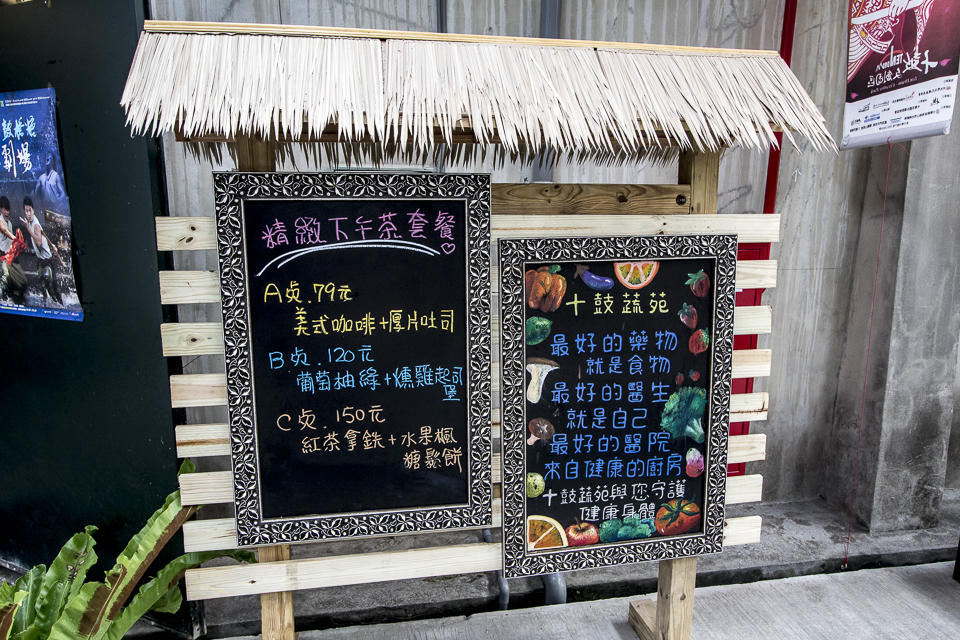 精緻下午茶套餐
A餐.79元
美式咖啡+厚片吐司
B餐.120元
葡萄柚綠+燻雞起司
堡
C餐.150元
紅茶拿鉄+水果楓
糖鬆餅
十鼓蔬苑
最好的藥物
就是食物
最好的醫生
就是自己
最好的醫院
來自健康的廚房
十鼓蔬苑與您守護
健康身體
劇場